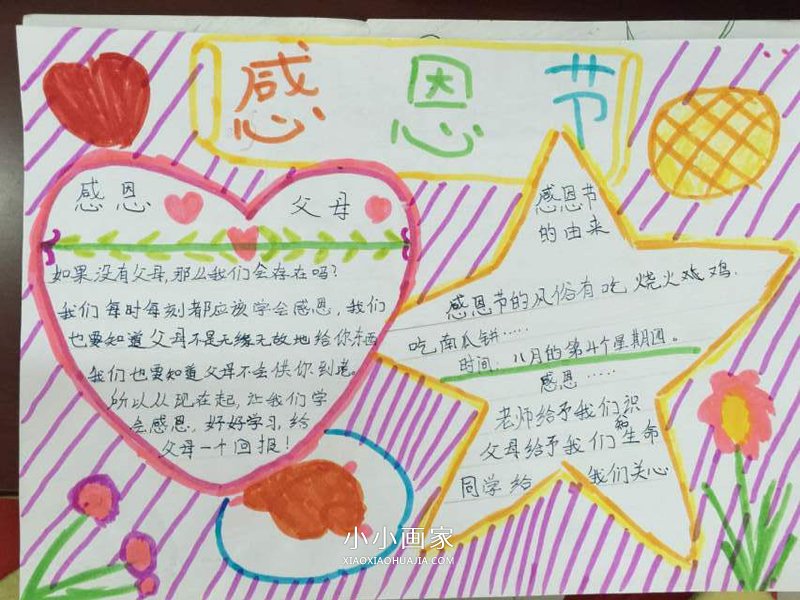 感恩节
感恩 父母
如果没有父母,那么我们会存在吗?
我们每时每刻都应该学会感恩,我们
也要知道父母不是无缘无故地给你东西
我们也要知道父母不会供你到老。
所以从现在起,让我们学
会感恩,好好学习,给
父母一个回报!
感恩节
的由来
感恩节的风俗有吃烧火鸡,
吃南瓜饼……
时间:八月的第4个星期四。
感恩……
老师给予我们知识
父母给予我们生命
同学给 我们关心
小小画家
XIAOXIAOHUAJIA.COM